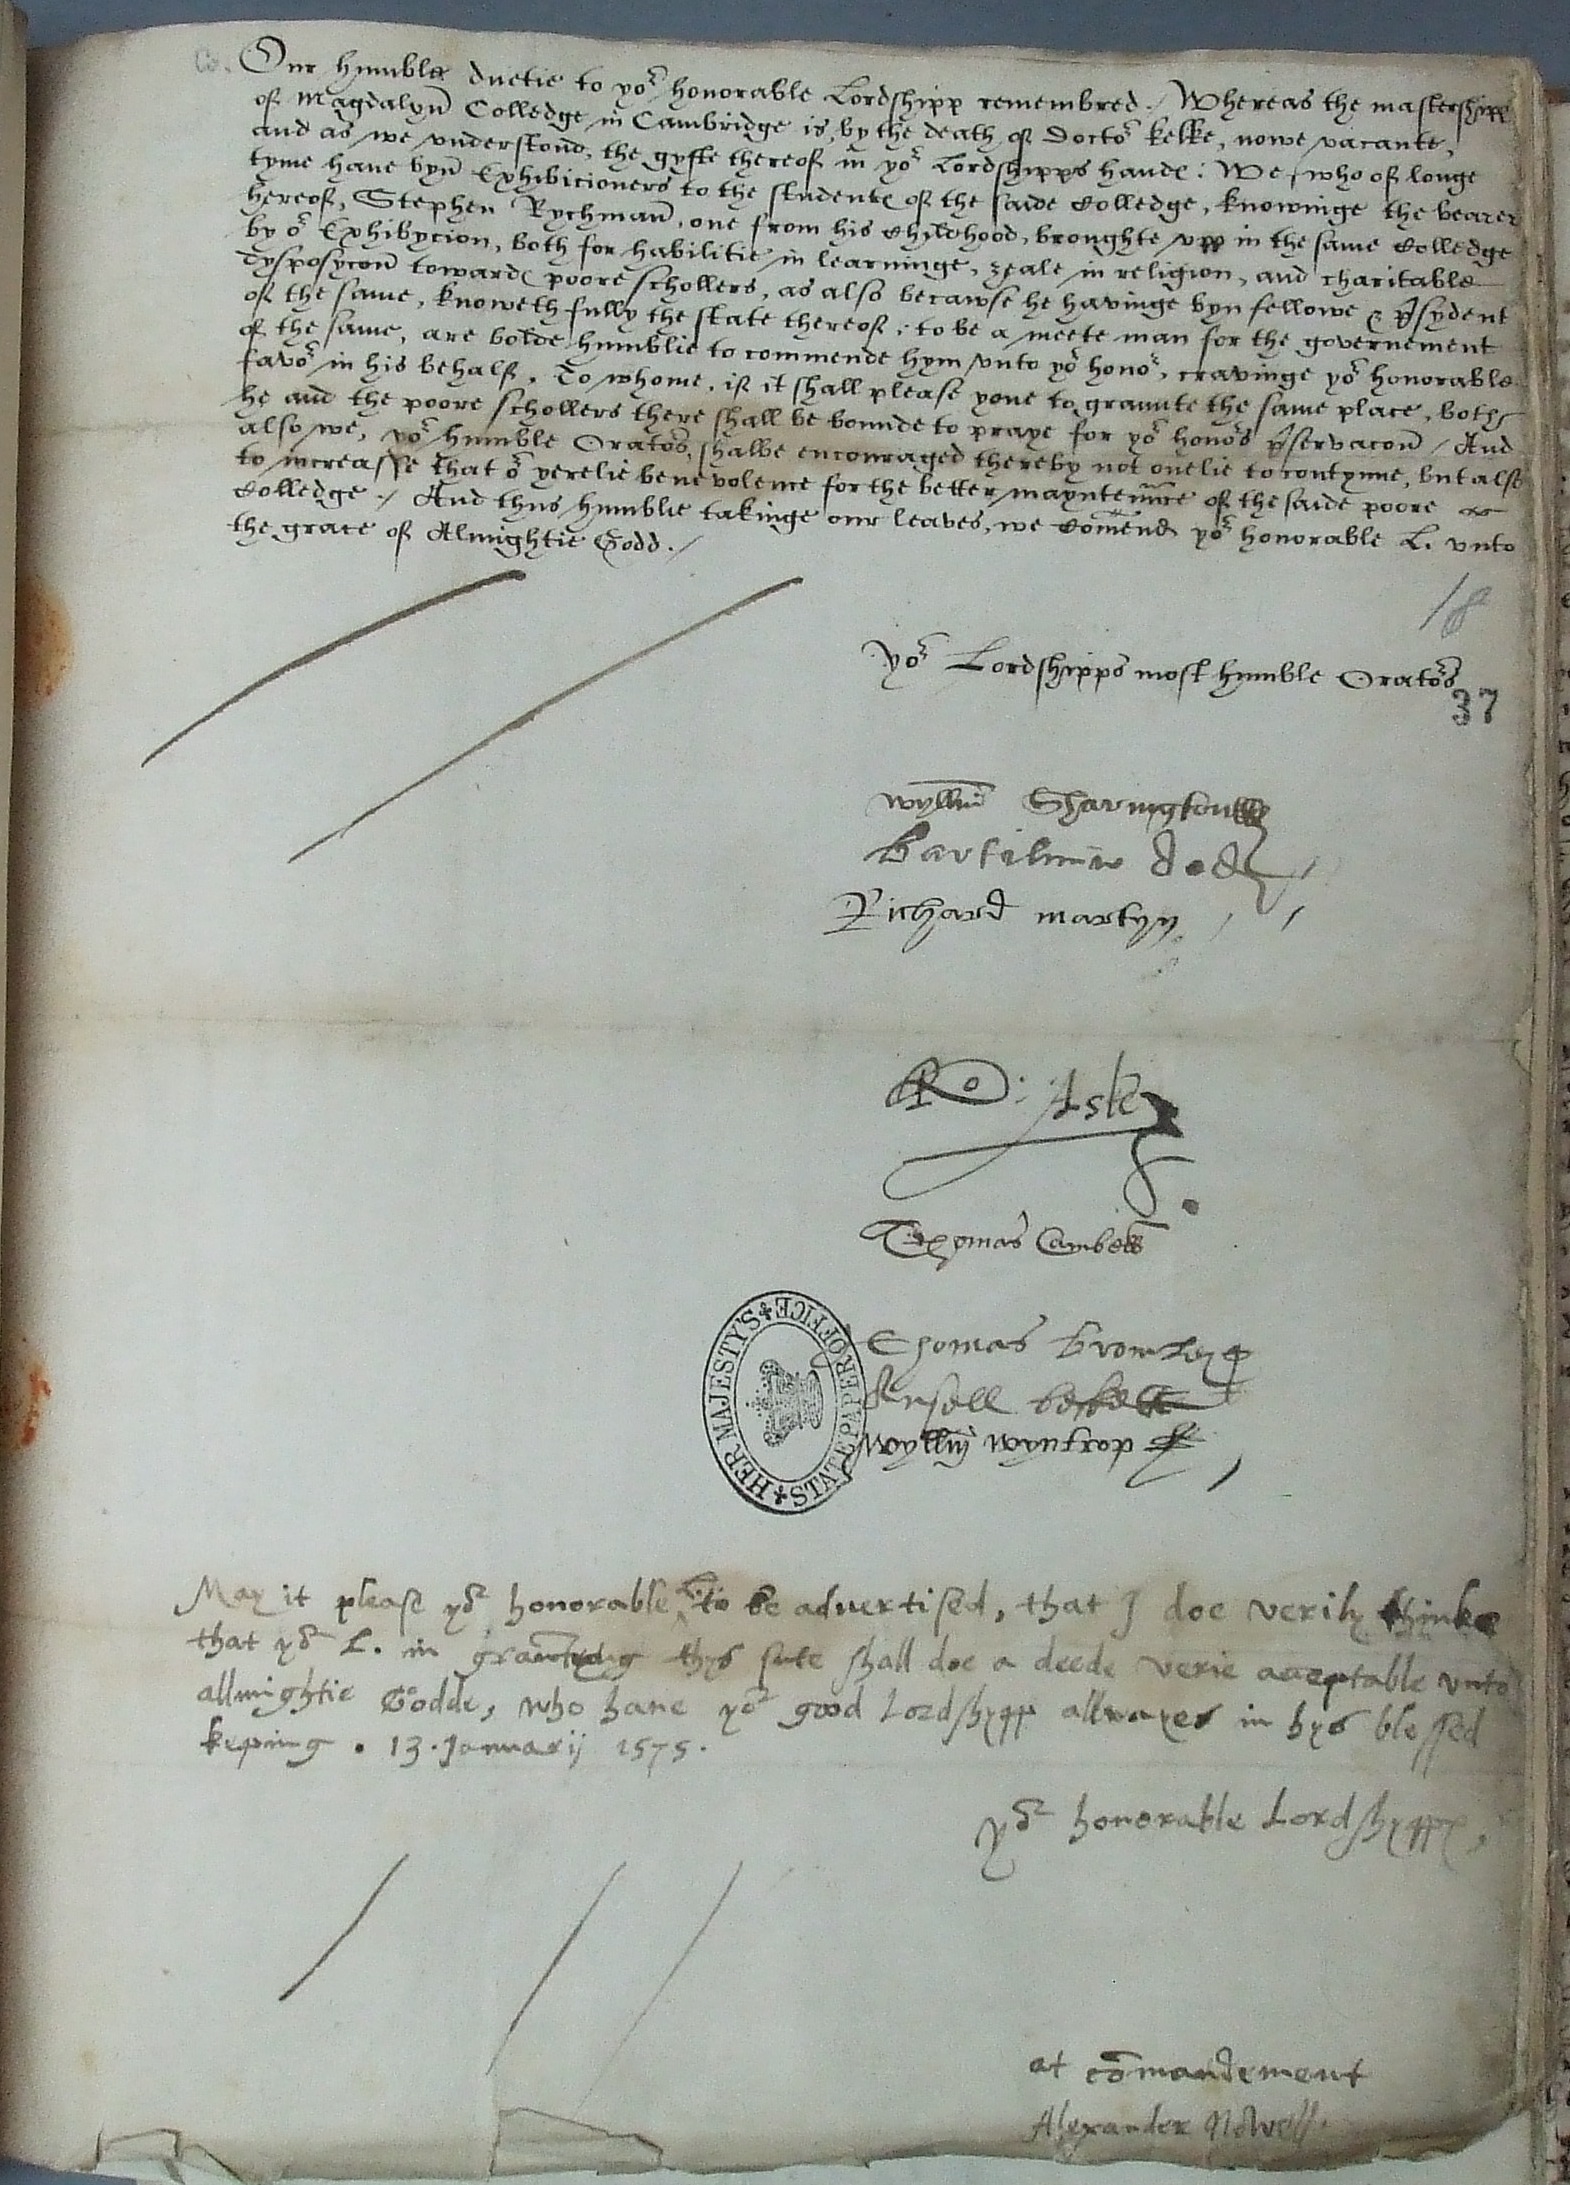 Our humble duetie to yor honorable Lordshipp remembred./ Whereas the mastershipp
of Magdalyn Colledge in Cambridge is, by the death of Doctor Kelke, nowe vacante,
and as we understond, the gyfte thereof in yor Lordshipps hands: We, who of longe
tyme have byn Exhibicioners to the students of the saide Colledge, knowinge the bearer
hereof, Stephen Rychman, one from his childhood, broughte upp in the same Colledge
by or Exhibycion, both for habilitie in learninge, zeale in religion, and charitable
dysposycon towards poore schollers, as also becawse he havinge byn fellowe & psydent
of the same, knoweth fully the state thereof; to be a meete man for the governement
of the same, are bolde humblie to commende hym unto yor honor, cravinge yor honorable
favor in his behalf. To whome, if it shall please youe to graunte the same place, both
he and the poore schollers there shall be bounde to praye for yor honors pservacon / And
also we, yor humble Orators, shalbe encouraged thereby not onelie to contynue, but also
to increasse that or yerelie benevolence for the better mayntennce of the saide poore
Colledge./ And thus humblie takinge our leaves, we comend yor honorable L. unto
the grace of Almightie Godd./
18
Yor Lordshipps most humble Orators
37
Wyllm Sharington
Bartilmew dod
Richard martyn
Ro: Aske
Thomas Cambell
Thomas Bromley
Ansell beckett
Wyllm Wyntrop
HER MAJESTY'S STATE PAPER OFFICE
May it please yor honorable L. to be advertised, that I doe verily thinke
that yor L. in graunting thys sute shall doe a deede verie acceptable unto
allmightie Godde, who have yor good Lordshypp allwayes in hys blessed
keping. 13. Januarij 1575.
Yor honorable Lordshypps,
at comandement
Alexander Nowell.